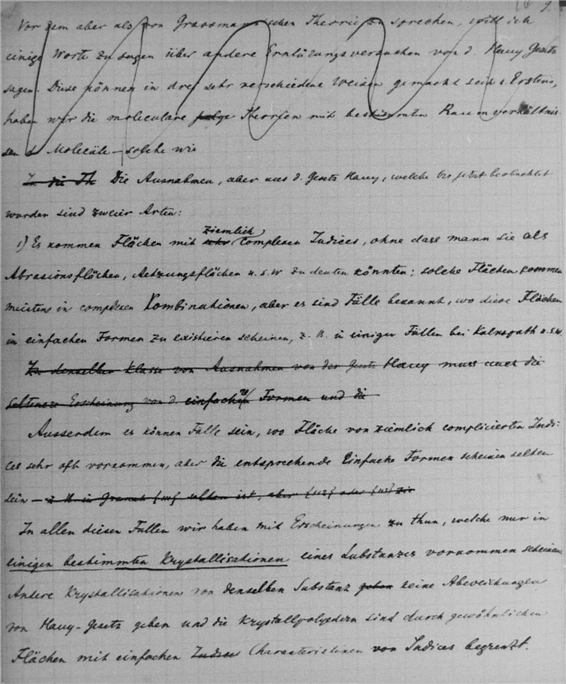 Vor dem aber als von Grassmann'schen Theorie zu sprechen, will ich
einige Worte zu sagen über andere Erklärungsversuchen von d. Hauy Gesetz
sagen. Diese können in drei sehr verschiedene Weisen gemacht sein: Erstens,
haben wir die moleculare Theorien mit bestimmten Raumverhältnis
sen d. Molecüle – solche wie
Z. die Th Die Ausnahmen, aber aus d. Gesetz Hauy, welche bis jetzt beobachtet
wurden sind zweier Arten:
1) Es kommen Flächen mit sehr ziemlich complexen Indices, ohne dass mann sie als
Abrasionsflächen, Aetzungsflächen u.s.w zu deuten könnten; solche Flächen kommen
meistens in complexen Kombinationen, aber es sind Fälle bekannt, wo diese Flächen
in einfachen Formen zu existieren scheinen, z. B. in einiger Fällen bei Kalkspath u.s.w.
Zu denselben Klasse von Ausnahmen von der Gesetz Hauy muss auch die
seltener Erscheinung von d. einfachen Formen und die
Ausserdem es können Fälle sein, wo Fläche von ziemlich complicierten Indi-
ces sehr oft vorkommen, aber die entsprechende Einfache Formen scheinen selten
sein – z. B. in Granat selten ist, aber oder
In allen diesen Fallen wir haben mit Erscheinungen zu thun, welche nur in
einigen bestimmten Krystallisationen eines Substanzes vorkommen scheinen.
Andere Krystallisationen von denselben Substanz geben keine Abweichungen
von Hauy-Gesetz geben und die Krystallpolyedern sind durch gewöhnlichen
Flächen mit einfachen Indices Characteristiken von Indices begrenzt.